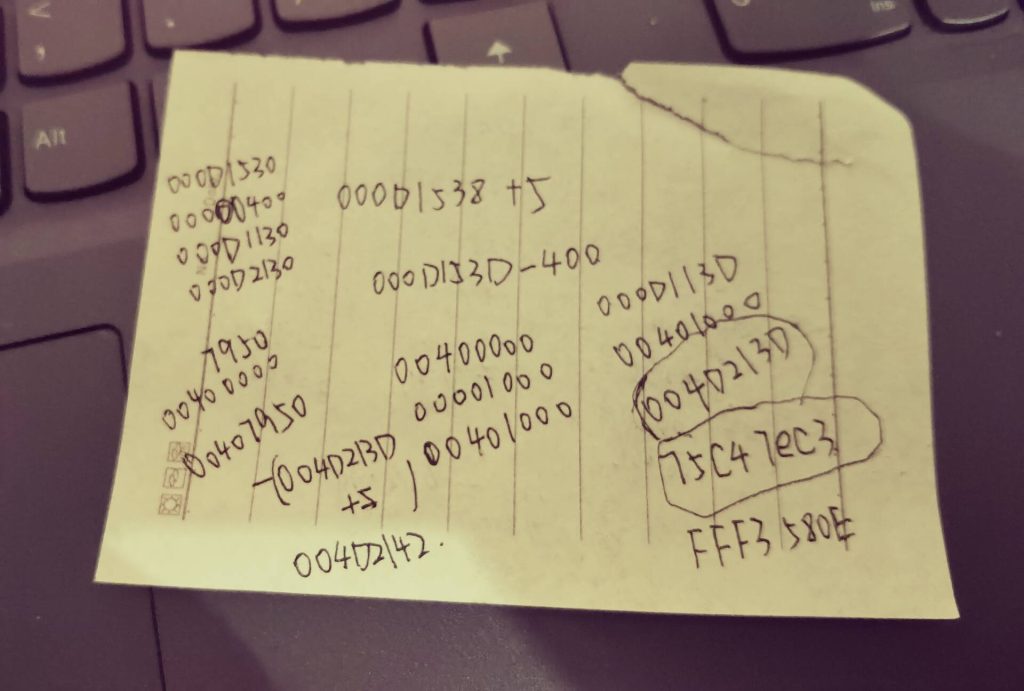 000D1530
00000400
000D1130
000D2130
7950
00400000
00407950
-(004D213D
+5 )
004D2142.
000D1538 +5
000D153D-400
00400000
00001000
00401000
000D113D
00401000
004D213D
75C47eC3
FFF3580E
Alt
Ins